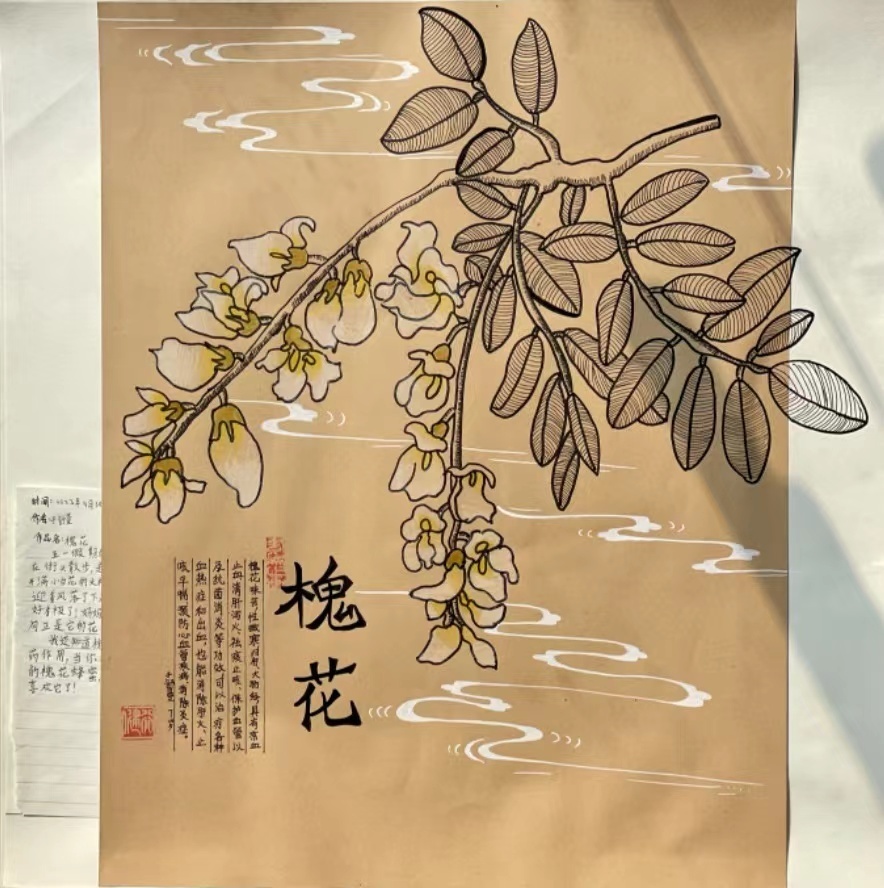 槐花
槐花味苦性微寒归肝大肠经具有凉血
止血清肝泻火、祛痰止咳、保护血管以
及抗菌消炎等功效可以治疗各种
血热症和出血,也能消除肝火、止
咳平喘、预防心血管疾病、消除炎症。
时间:
作者:
作品名:槐花
五一假期
在街上散步,
开满小白花的大
迎着风落了下
好看极了!妈妈
正是它的花
我还知道槐
药作用,当你
的槐花蜂蜜,
喜欢它了!